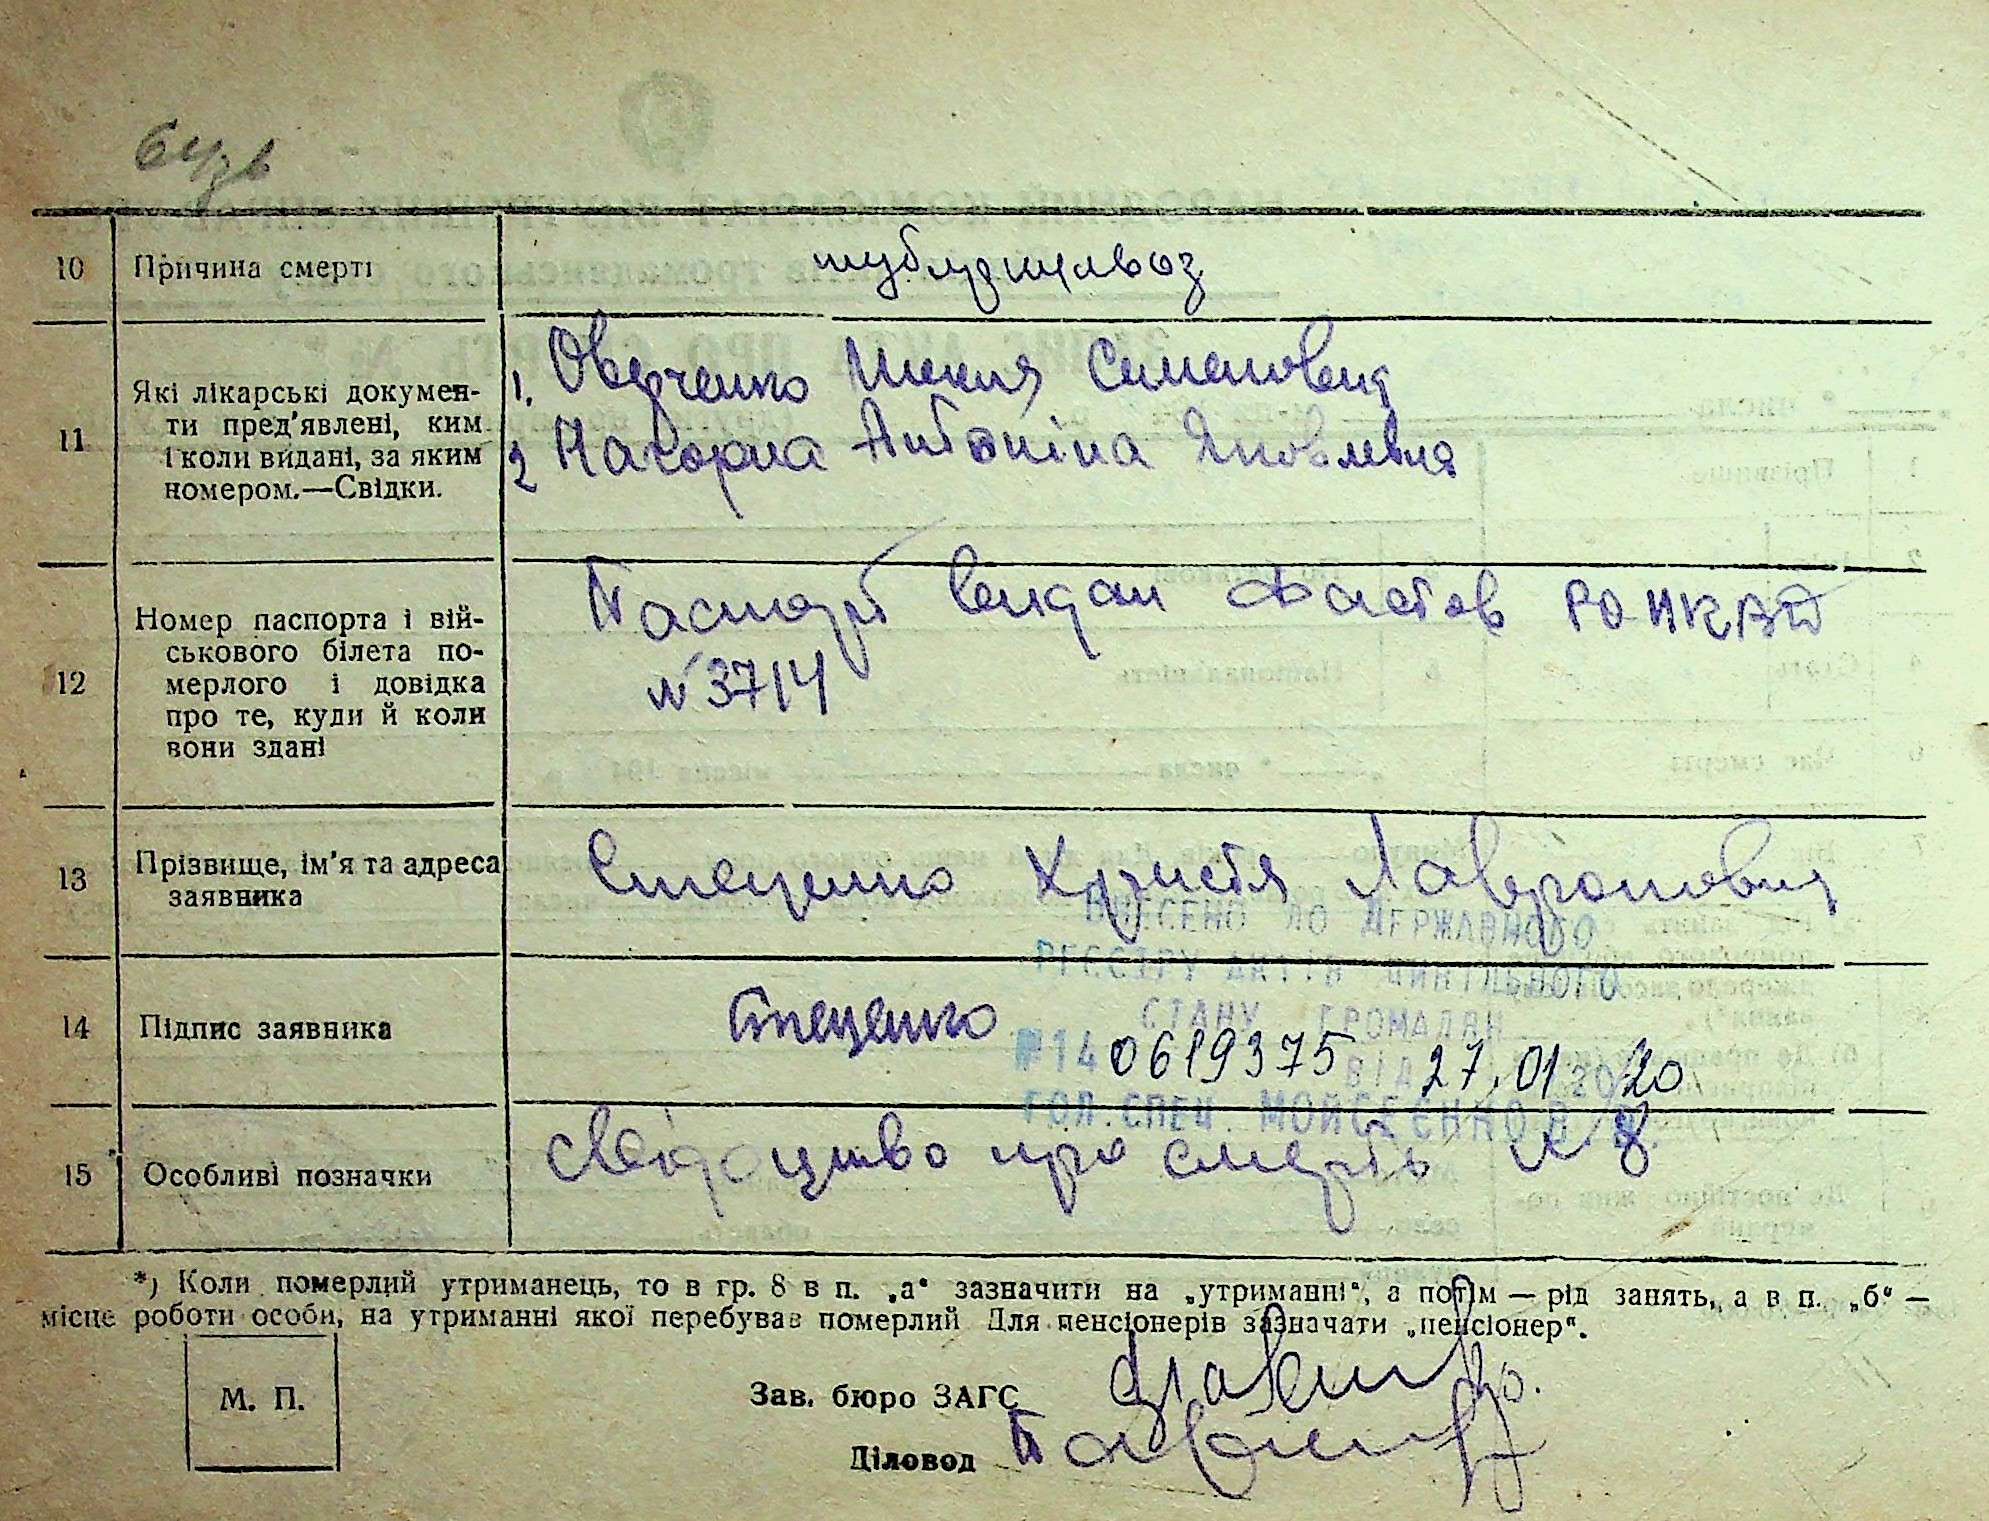 10 Причина смерті туберкульоз
11 Які лікарські докумен-
ти пред'явлені, ким
і коли видані, за яким
номером.—Свідки.
1. Овдченко Симеоновна
2 Нагорна Антоніна Яковлевна
12 Номер паспорта і вій-
ськового білета по-
мерлого і довідка
про те, куди й коли
вони здані
Паспорт видан Фастов РО НКВД
№ 3714
13 Прізвище, ім'я та адреса
заявника
Стеценко Христя Лавроновна
ВНЕСЕНО ДО ДЕРЖАВНОГО
РЕЄСТРУ АКТІВ ЦИВІЛЬНОГО
СТАНУ ГРОМАДЯН
14 Підпис заявника Стеценко
№14 0619375 ВІД 27.01.2020
ГОЛ.СПЕЦ. МОЙСЕЄНКО
15 Особливі позначки свідоцтво про смерть № 8
*) Коли померлий утриманець, то в гр. 8 в п. „а“ зазначити на „утриманні“, а потім — рід занять, а в п. „б“ —
місце роботи особи, на утриманні якої перебував померлий Для пенсіонерів зазначати „пенсіонер“.
М. П.
Зав. бюро ЗАГС
Діловод